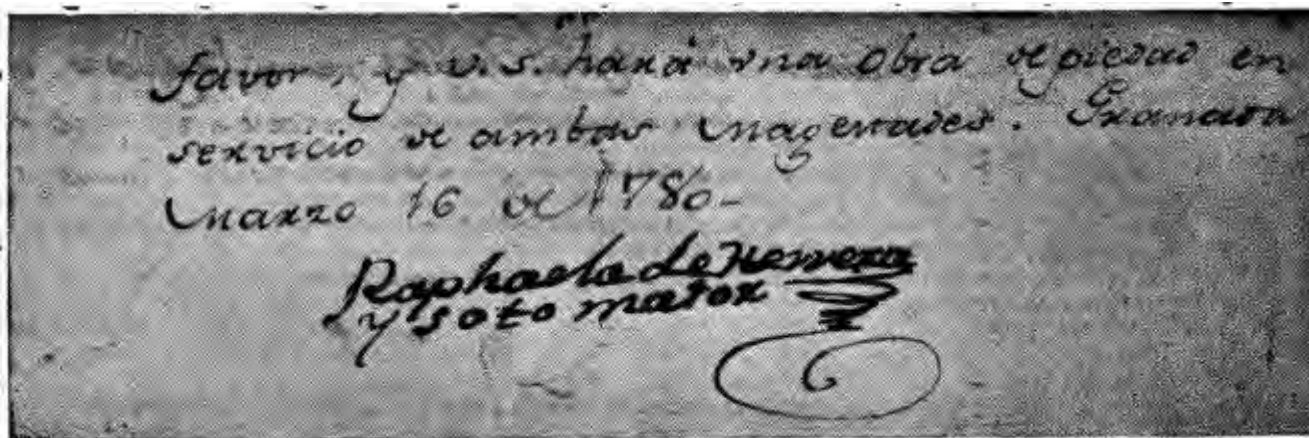 favor, y v.s. hará vna obra de piedad en
servicio de ambas Magestades. Granada
Marzo 16. de 1780-
Raphaela de Herrera
y sotomaior